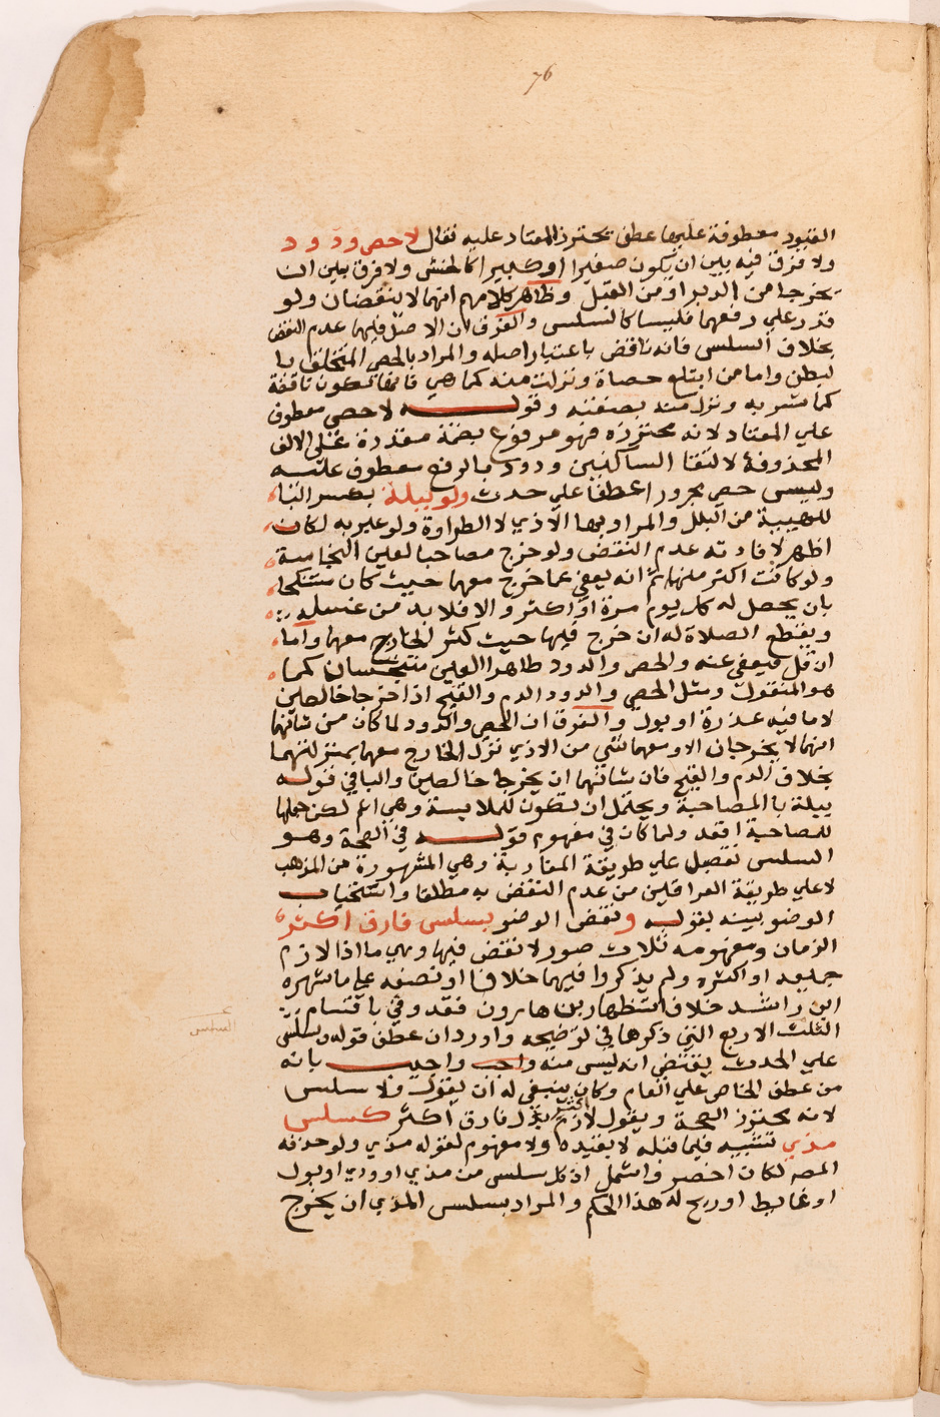 76
القيود معطوفة عليها عطف محترز المعتاد عليه فقال لا حصى ودود
ولا فرق فيه بين ان يكون صغيرا او كبيرا كالحنش ولا فرق بين ان
يخرجا من الدبر او من القبل وظاهر كلامهم انهما لا ينقضان ولو
قدر علي رفعهما فليسا كالسلس والفرق ان الاصل فيهما عدم النقض
بخلاف السلس فانه ناقض باعتبار اصله والمراد بالحصى المتخلق با
لبطن واما من ابتلع حصاة ونزلت منه كما هي فانها تكون ناقضة
كما شربه ونزل منه بصفته وقوله لا حصي معطوف
علي المعتاد لانه محترزه فهو مرفوع بضمة مقدرة علي الالف
المحذوفة لالتقا الساكنين ودود بالرفع معطوف عليه
وليس حصي مجرورا عطفا علي حدث ولو ببلة بكسر البا
للهيبة من البلل والمراد بها الاذي لا الطراوة ولو عبر به لكان
اظهر لافادته عدم النقض ولو خرج مصاحبا لعين النجاسة
ولو كانت اكثر منها ثم انه يعفي عما خرج معهما حيث كان مستنكحا
بان يحصل له كل يوم مرة او اكثر والا فلا بد من غسله
ويقطع الصلاة له ان خرج فيها حيث كثر الخارج معهما واما
ان قل فيعفي عنه والحصى والدود طاهرا العين متنجسان كما
هو المنقول ومثل الحصى والدود الدم والقيح اذا خرجا خالصين
لا ما فيه عذرة او بول والفرق ان الحصى والدود لما كان من شانهما
انهما لا يخرجان الا ومعهما شي من الاذي نزل الخارج معهما بمنزلتهما
بخلاف الدم والقيح فان شانهما ان يخرجا خالصين والبا في قوله
ببلة با المصاحبة ويحتمل ان تكون للملابسة وهي اعم لكن جعلها
للمصاحبة اقعد ولما كان في مفهوم قوله في الصحة وهو
السلس تفصيل علي طريقة المغاربة وهي المشهورة من المذهب
لا علي طريقة العراقيين من عدم النقض به مطلقا واستحباب
الوضو بينه بقوله ونقض الوضو بسلس فارق اكثر
الزمان ومفهومه ثلاث صور لا نقض فيها وهي ما اذا لازم
جميعه او اكثره ولم يذكروا فيهما خلافا او نصفه علي ما شهره
ابن راشد خلافا لاستظهار بن هارون فقد وفي باقسام
الثلث الاربع التي ذكرها في توضيحه واورد ان عطف قوله وبسلس
علي الحدث يقتضي انه ليس منه واجب واجيب بانه
من عطف الخاص علي العام وكان ينبغي له ان يقول ولا سلس
لانه محترز الصحة ويقول لازم بدل فارق اكثر كسلس
مذي تشبيه فيما قبله لا يفيده ولا مفهوم لقوله مذي ولو حذفه
المصـ لكان اخصر واشمل اذ كل سلس من مذي او ودي او بول
او غايط او ريح له هذا الحكم والمراد بسلس المذي ان يخرج